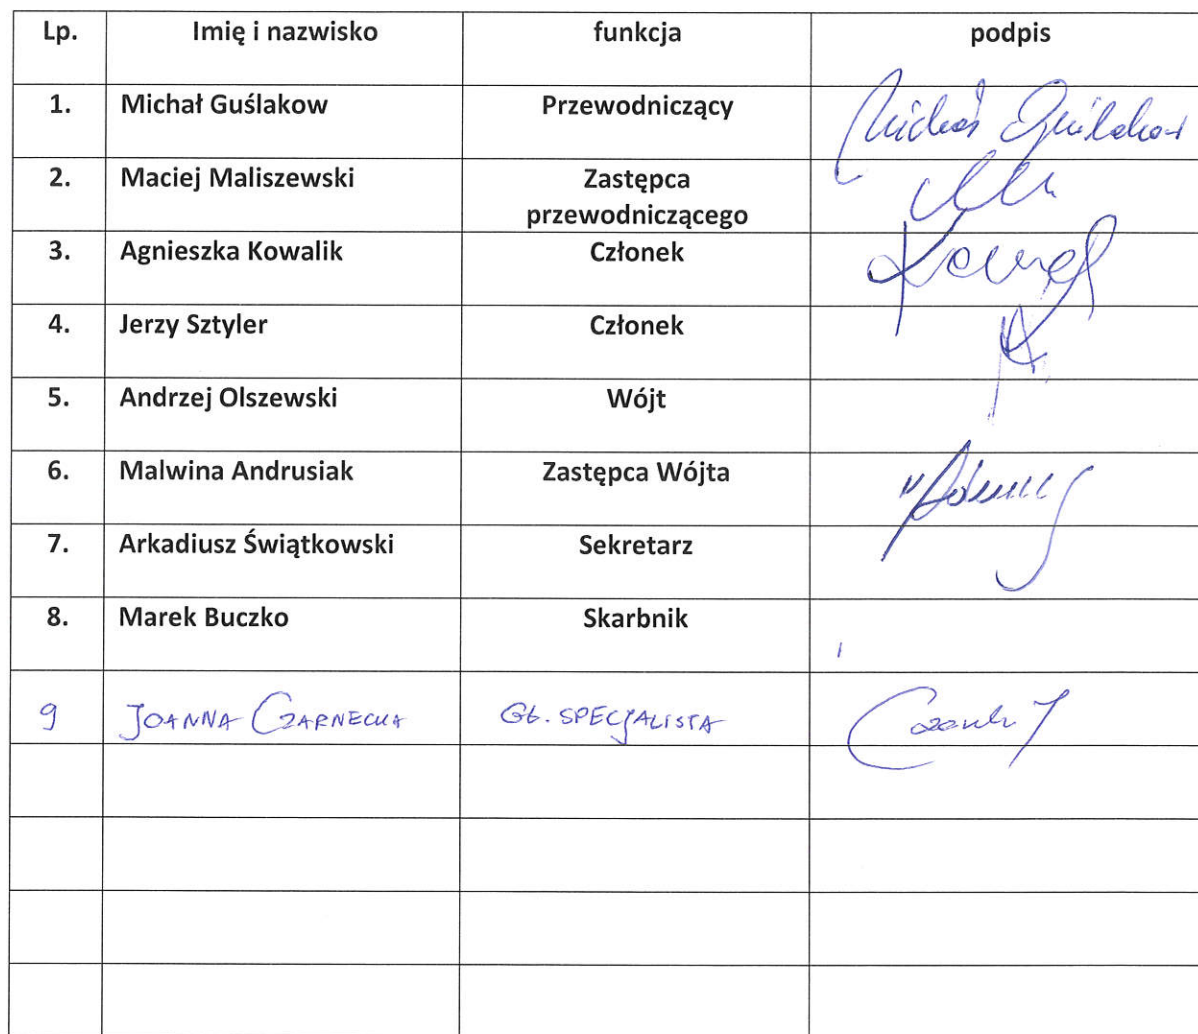 Lp. Imię i nazwisko funkcja podpis
1. Michał Guślakow Przewodniczący
2. Maciej Maliszewski Zastępca
przewodniczącego
3. Agnieszka Kowalik Członek
4. Jerzy Sztyler Członek
5. Andrzej Olszewski Wójt
6. Malwina Andrusiak Zastępca Wójta
7. Arkadiusz Świątkowski Sekretarz
8. Marek Buczko Skarbnik
9 JOANNA CZARNECKA GŁ. SPECJALISTA